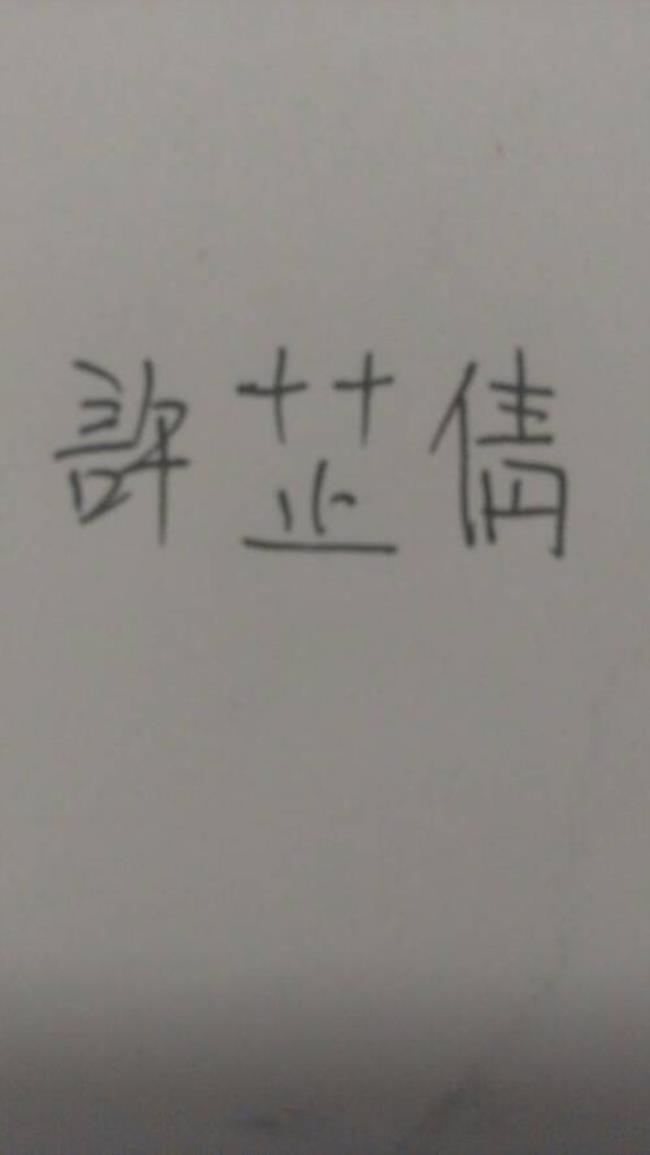 許芷倩